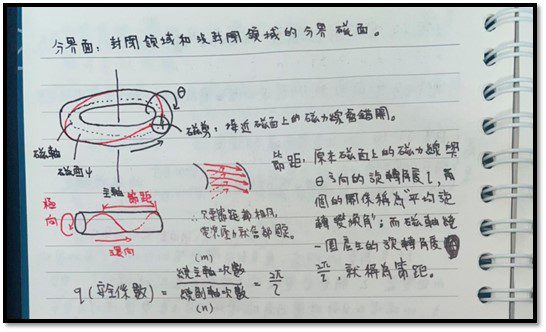 分界面：封閉領域和沒封閉領域的分界磁面。
θ
磁剪：接近磁面上的磁力線會錯開。
磁軸
磁面ψ
節距：原本磁面上的磁力線與
θ方向的旋轉角度ι，兩
個的關係稱為"平均旋
轉變換角"；而磁軸繞
一圈產生的旋轉角度
2π/ι，就稱為節距。
主軸
節距
極向
環向
∴只要節距都相同，
(m)
q(安全係數) = 繞主軸次數/繞副軸次數 = 2π/ι
(n)